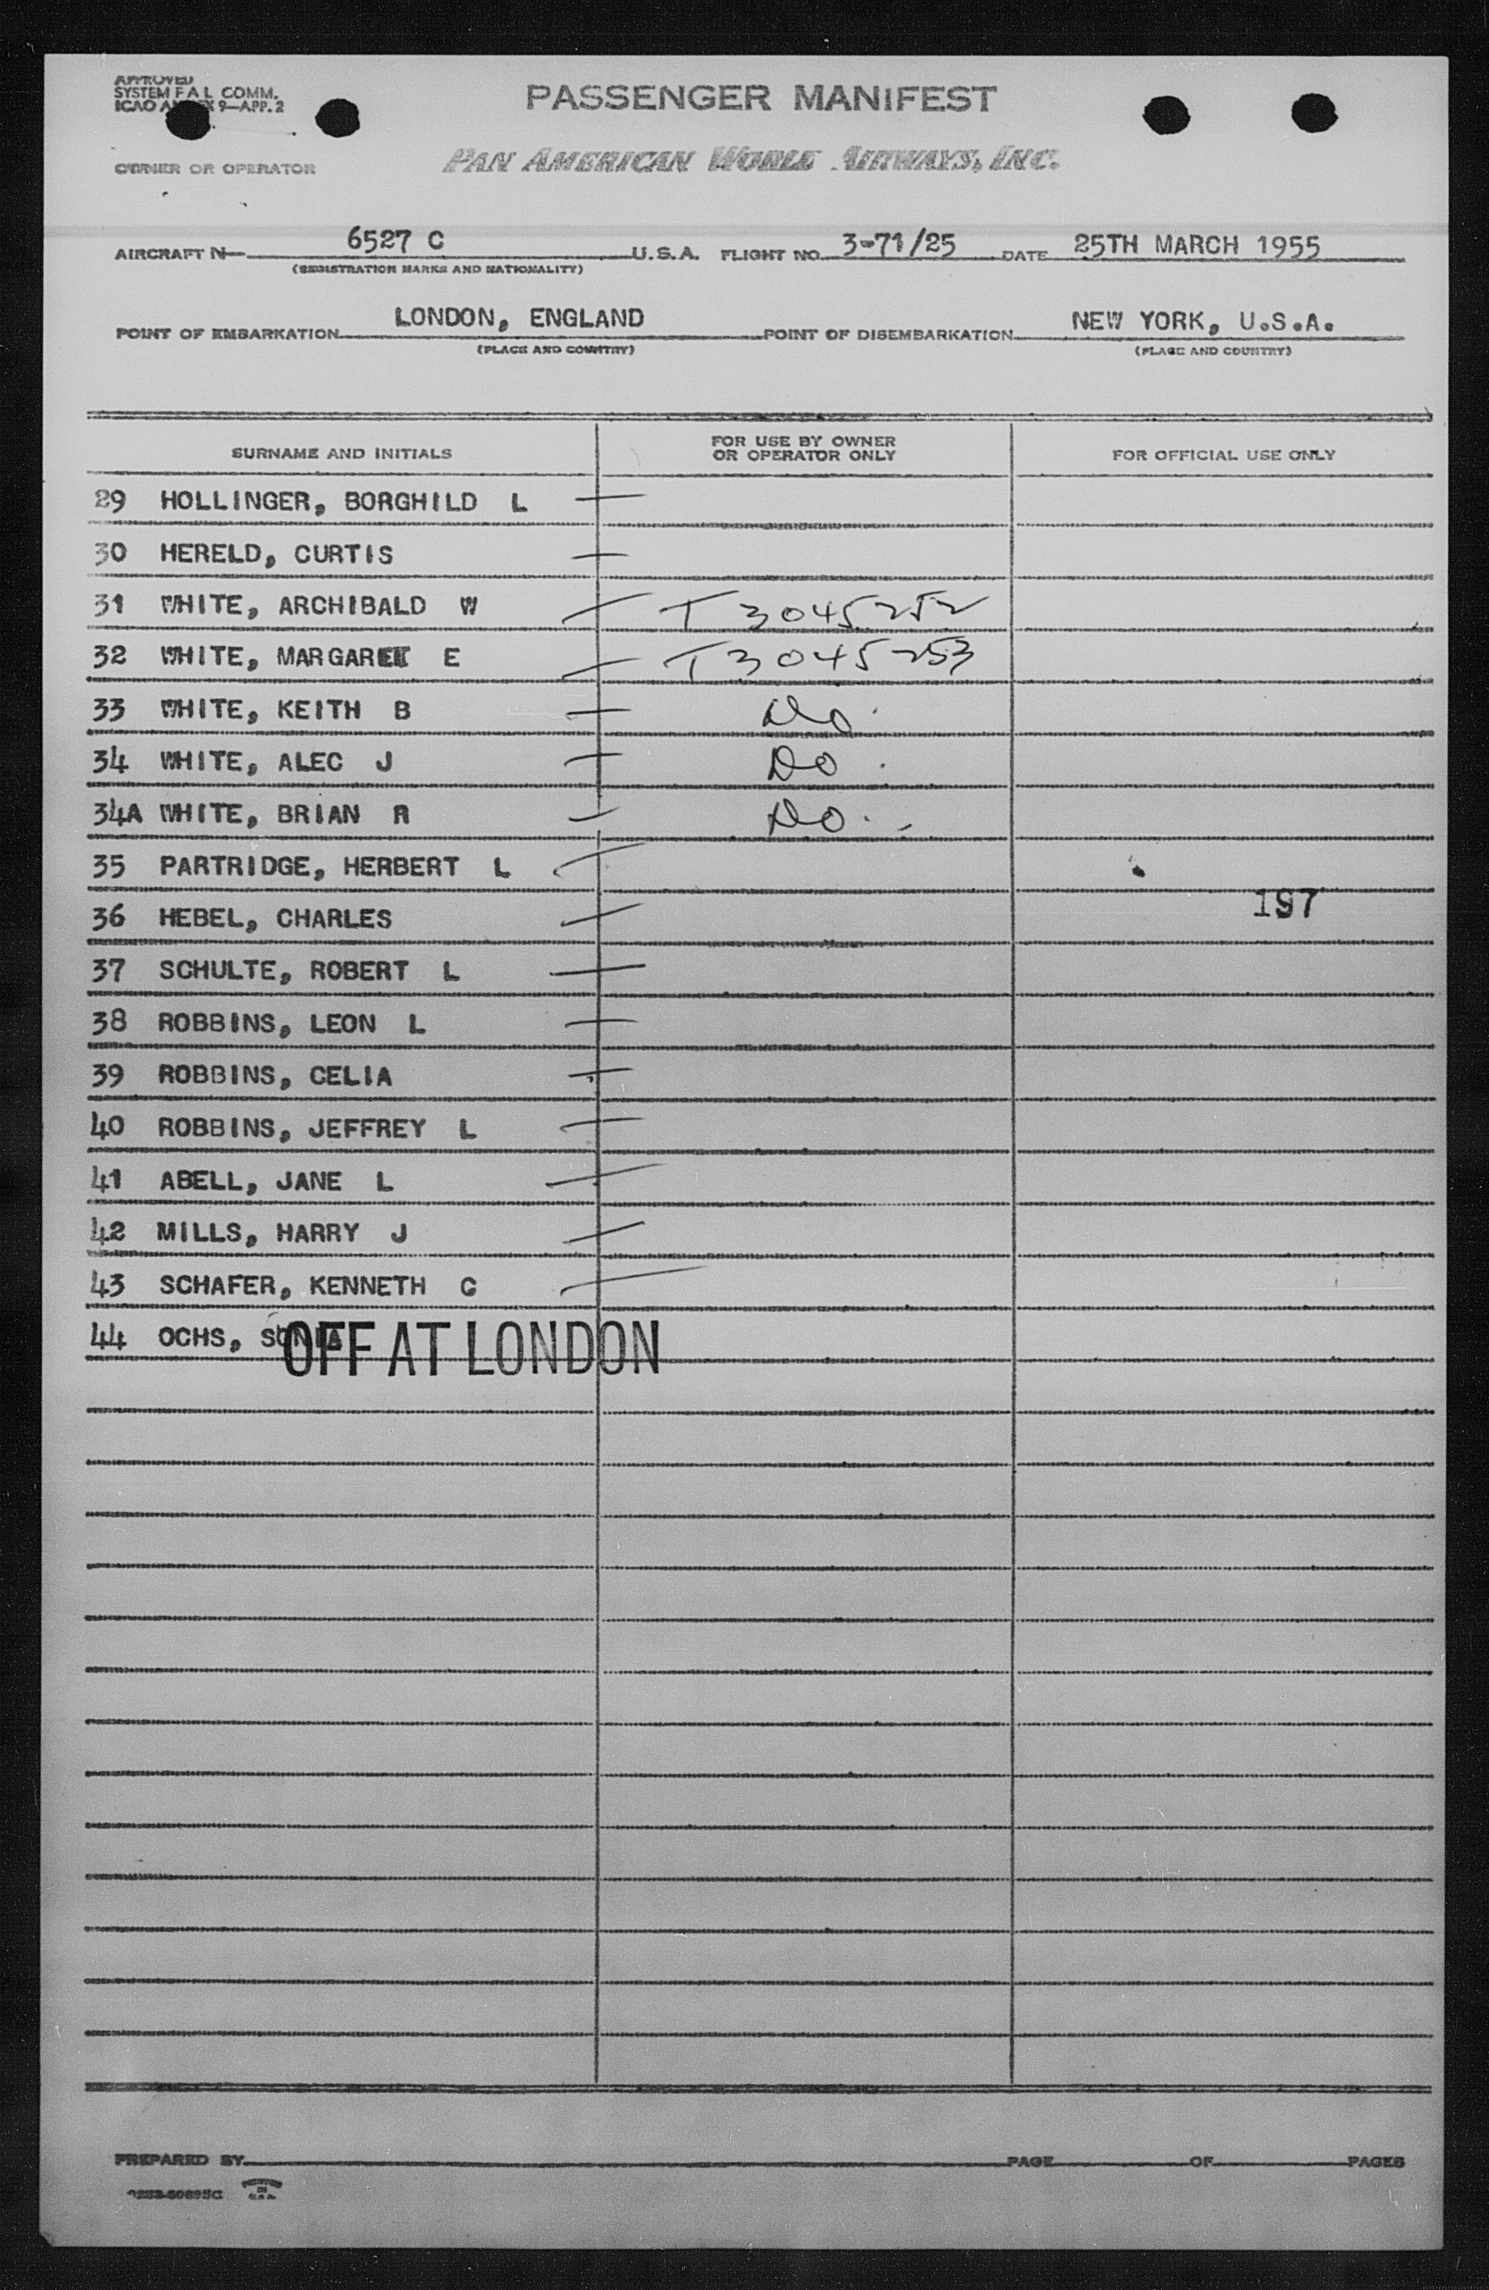 APPROVED
SYSTEM F A L COMM.
ICAO ANNEX 9—APP. 2
PASSENGER MANIFEST
OWNER OR OPERATOR
PAN AMERICAN WORLD AIRWAYS, INC.
AIRCRAFT N 6527 C U.S.A. FLIGHT NO. 3-71/25 DATE 25TH MARCH 1955
(REGISTRATION MARKS AND NATIONALITY)
POINT OF EMBARKATION LONDON, ENGLAND POINT OF DISEMBARKATION NEW YORK, U.S.A.
(PLACE AND COUNTRY) (PLACE AND COUNTRY)
SURNAME AND INITIALS FOR USE BY OWNER OR OPERATOR ONLY FOR OFFICIAL USE ONLY
29 HOLLINGER, BORGHILD L
30 HERELD, CURTIS
31 WHITE, ARCHIBALD W T 3045252
32 WHITE, MARGARET E T3045253
33 WHITE, KEITH B Do.
34 WHITE, ALEC J Do.
34A WHITE, BRIAN R Do.
35 PARTRIDGE, HERBERT L
36 HEBEL, CHARLES 197
37 SCHULTE, ROBERT L
38 ROBBINS, LEON L
39 ROBBINS, CELIA
40 ROBBINS, JEFFREY L
41 ABELL, JANE L
42 MILLS, HARRY J
43 SCHAFER, KENNETH G
44 OCHS, OFF AT LONDON
PREPARED BY PAGE OF PAGES
PRINTED IN U.S.A.